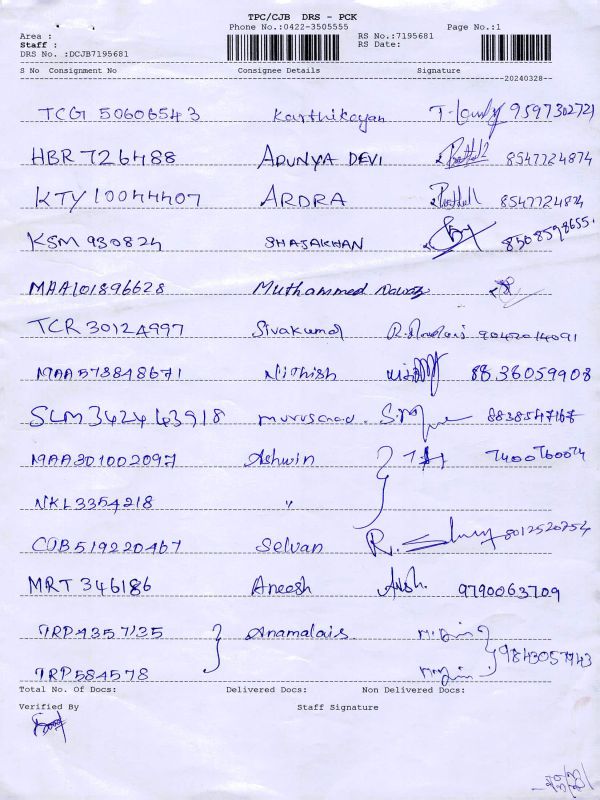 TPC/CJB DRS - PCK
Phone No.:0422-3505555 Page No.:1
Area : RS No.:7195681
Staff : RS Date:
DRS No. :DCJB7195681
S No Consignment No Consignee Details Signature
20240328--
TCG 50606543 Karthikeyan 9597302721
HBR 726488 ADUNYA DEVI 8547724874
KTY 10044407 ARDRA 8547724874
KSM 930824 SHAJAKHAN 8508598655.
MAA101896628 Muthammed Nawaz
TCR 30124997 Sivakumar 9042014091
MAA573848671 Nithish 8836059908
SLM342463918 8838547168
MAA301002097 Ashwin 7400760074
NKL3354218 "
COB519220467 Selvan R. 8012520754
MRT 346186 Aneesh 9790063709
TRP4357135 Anamalais.
9843057943
TRP584578
Total No. Of Docs: Delivered Docs: Non Delivered Docs:
Verified By Staff Signature